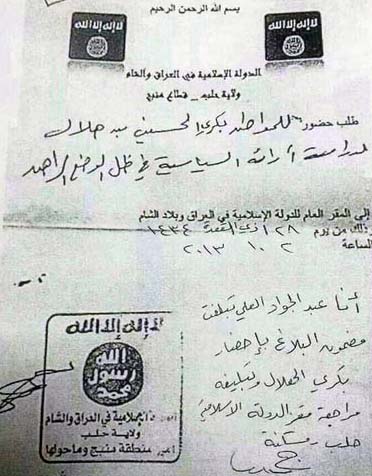 بسم الله الرحمن الرحيم
لا إله إلا الله
لا إله إلا الله
الدولة الإسلامية في العراق والشام
ولاية حلب – قطاع منبج
طلب حضور للمواطن بكري الحسين
أرائه السياسية في ظل الوضع الراهن
إلى المقر العام للدولة الإسلامية في العراق وبلاد الشام
وذلك من يوم ٢٨ ذي القعدة ١٤٣٤
الساعة ٢ ١٠ ٢٠١٣
أنا عبد الجواد العلي تبلغت
مضمون البلاغ بإحضار
بكري الهلال وتبليغه
مراجعة مقر الدولة الإسلامية
حلب
لا إله إلا الله
الله
رسول
محمد
الإسلامية في العراق والشام
ولاية حلب
منطقة منبج وماحولها